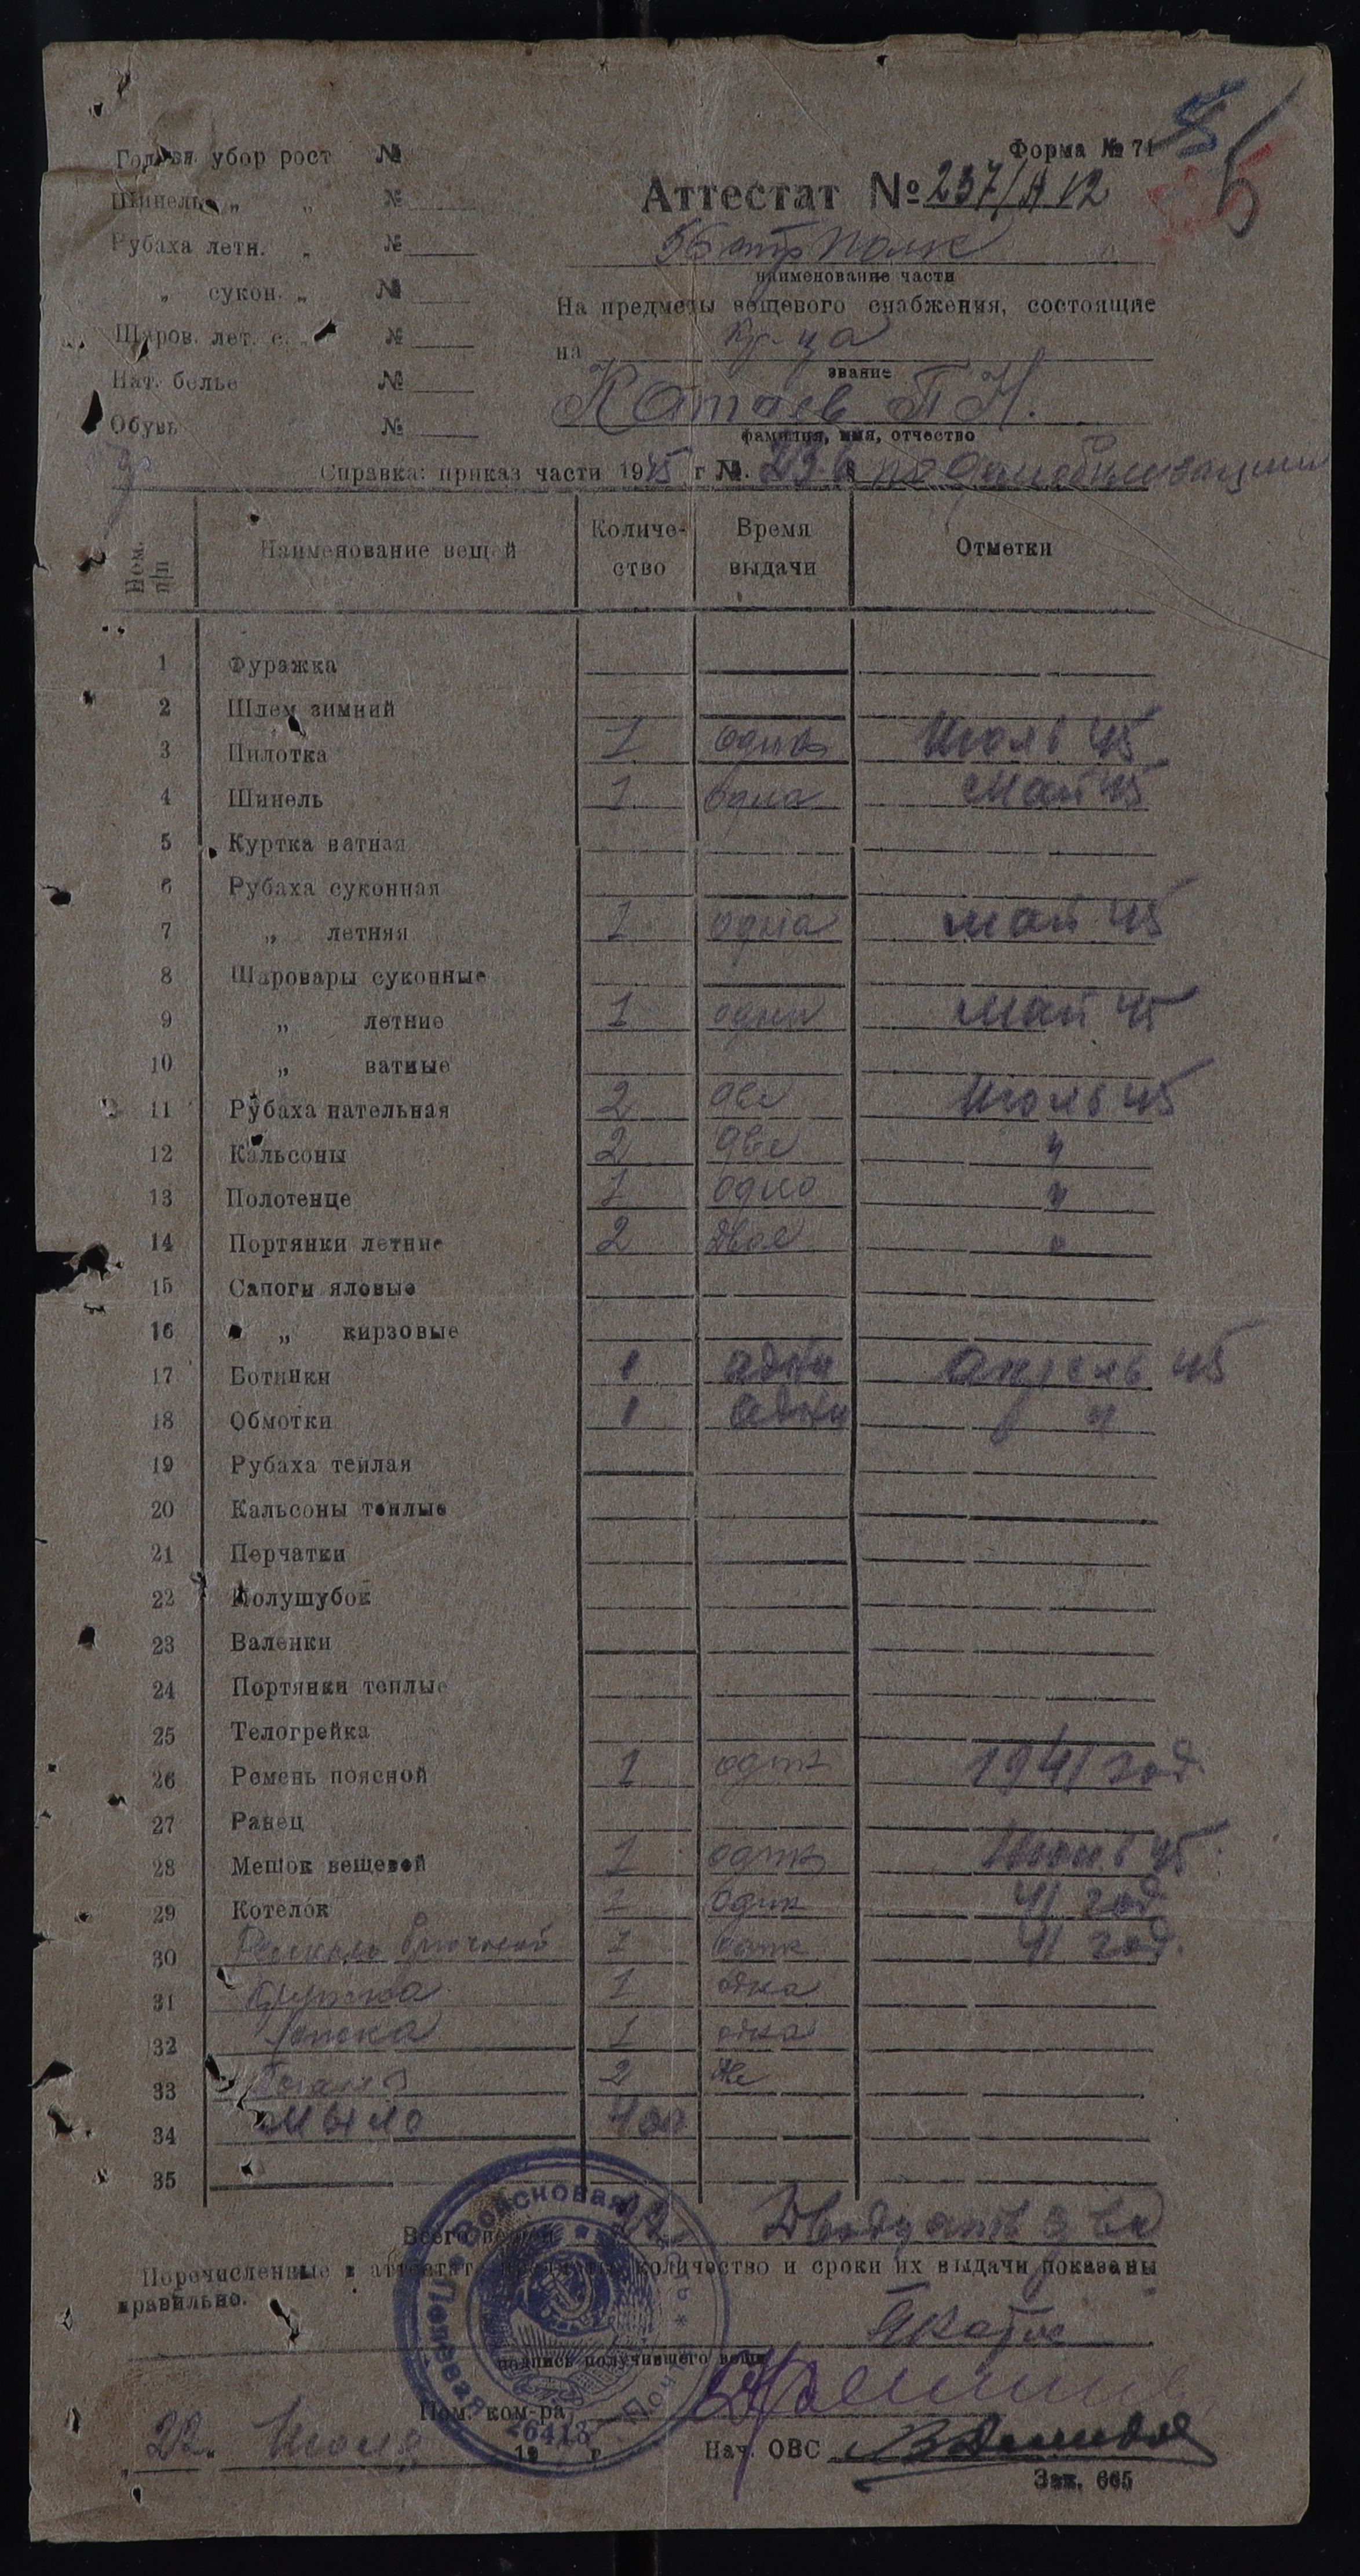 Форма № 71
Головн. убор рост №
Аттестат № 237/А 12
Шинель „ „ №
56 стр полк
Рубаха летн. „ №
наименование части
„ сукон. „ №
На предметы вещевого снабжения, состоящие
Шаров. лет. с. „ №
на кр-ца
звание
Нат. белье №
Катаев П Н.
Обувь №
фамилия, имя, отчество
Справка: приказ части 1945 г № по демобилизации
Ном. п/п Наименование вещей Количество Время выдачи Отметки
1 Фуражка
2 Шлем зимний
3 Пилотка 1 одна Июль 45
4 Шинель 1 одна Май 45
5 Куртка ватная
6 Рубаха суконная
7 „ летняя 1 одна Май 45
8 Шаровары суконные
9 „ летние 1 одни Май 45
10 „ ватные
11 Рубаха нательная 2 две Июль 45
12 Кальсоны 2 две "
13 Полотенце 1 одно "
14 Портянки летние 2 двое "
15 Сапоги яловые
16 „ кирзовые
17 Ботинки 1 одни Апрель 45
18 Обмотки 1 одни "
19 Рубаха теплая
20 Кальсоны теплые
21 Перчатки
22 Полушубок
23 Валенки
24 Портянки теплые
25 Телогрейка
26 Ремень поясной 1 один 1941 год
27 Ранец
28 Мешок вещевой 1 один Июль 45
29 Котелок 1 один 41 год
30 Ремень брючной 1 один 41 год.
31 Кружка 1 одна
32 Ложка 1 одна
33 2 две
34 Мыло 400
35
Всего вещей 22 Двадцать два
Перечисленные в аттестате предметы, количество и сроки их выдачи показаны
правильно.
подпись получившего вещи
Пом. ком-ра
22. Июля 19 г
Нач. ОВС
Зак. 665
Войсковая Полевая Почта
26413